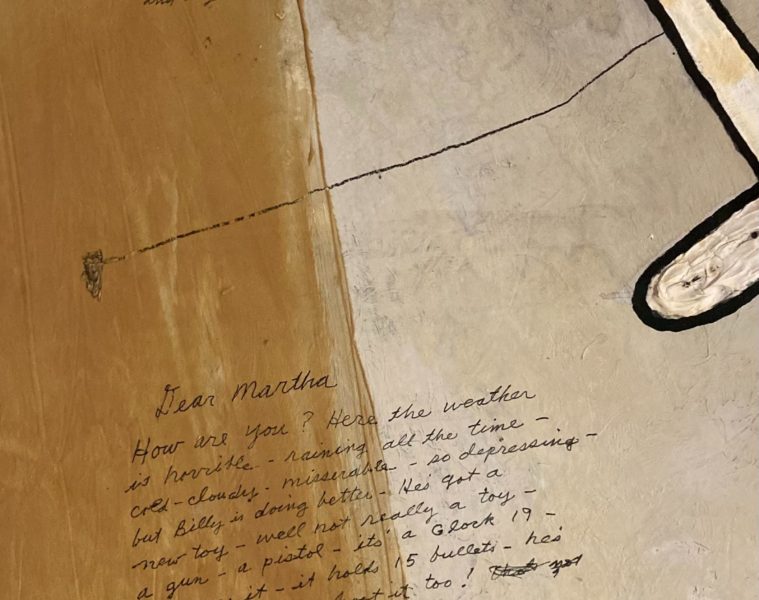 Dear Martha
How are you? Here the weather
is horrible - raining all the time -
cold - cloudy - misserable - so depressing -
but Billy is doing better - He's got a
new toy - well not really a toy -
a gun - a pistol - its a Glock 19 -
it - it holds 15 bullets - he's
it too! That's not